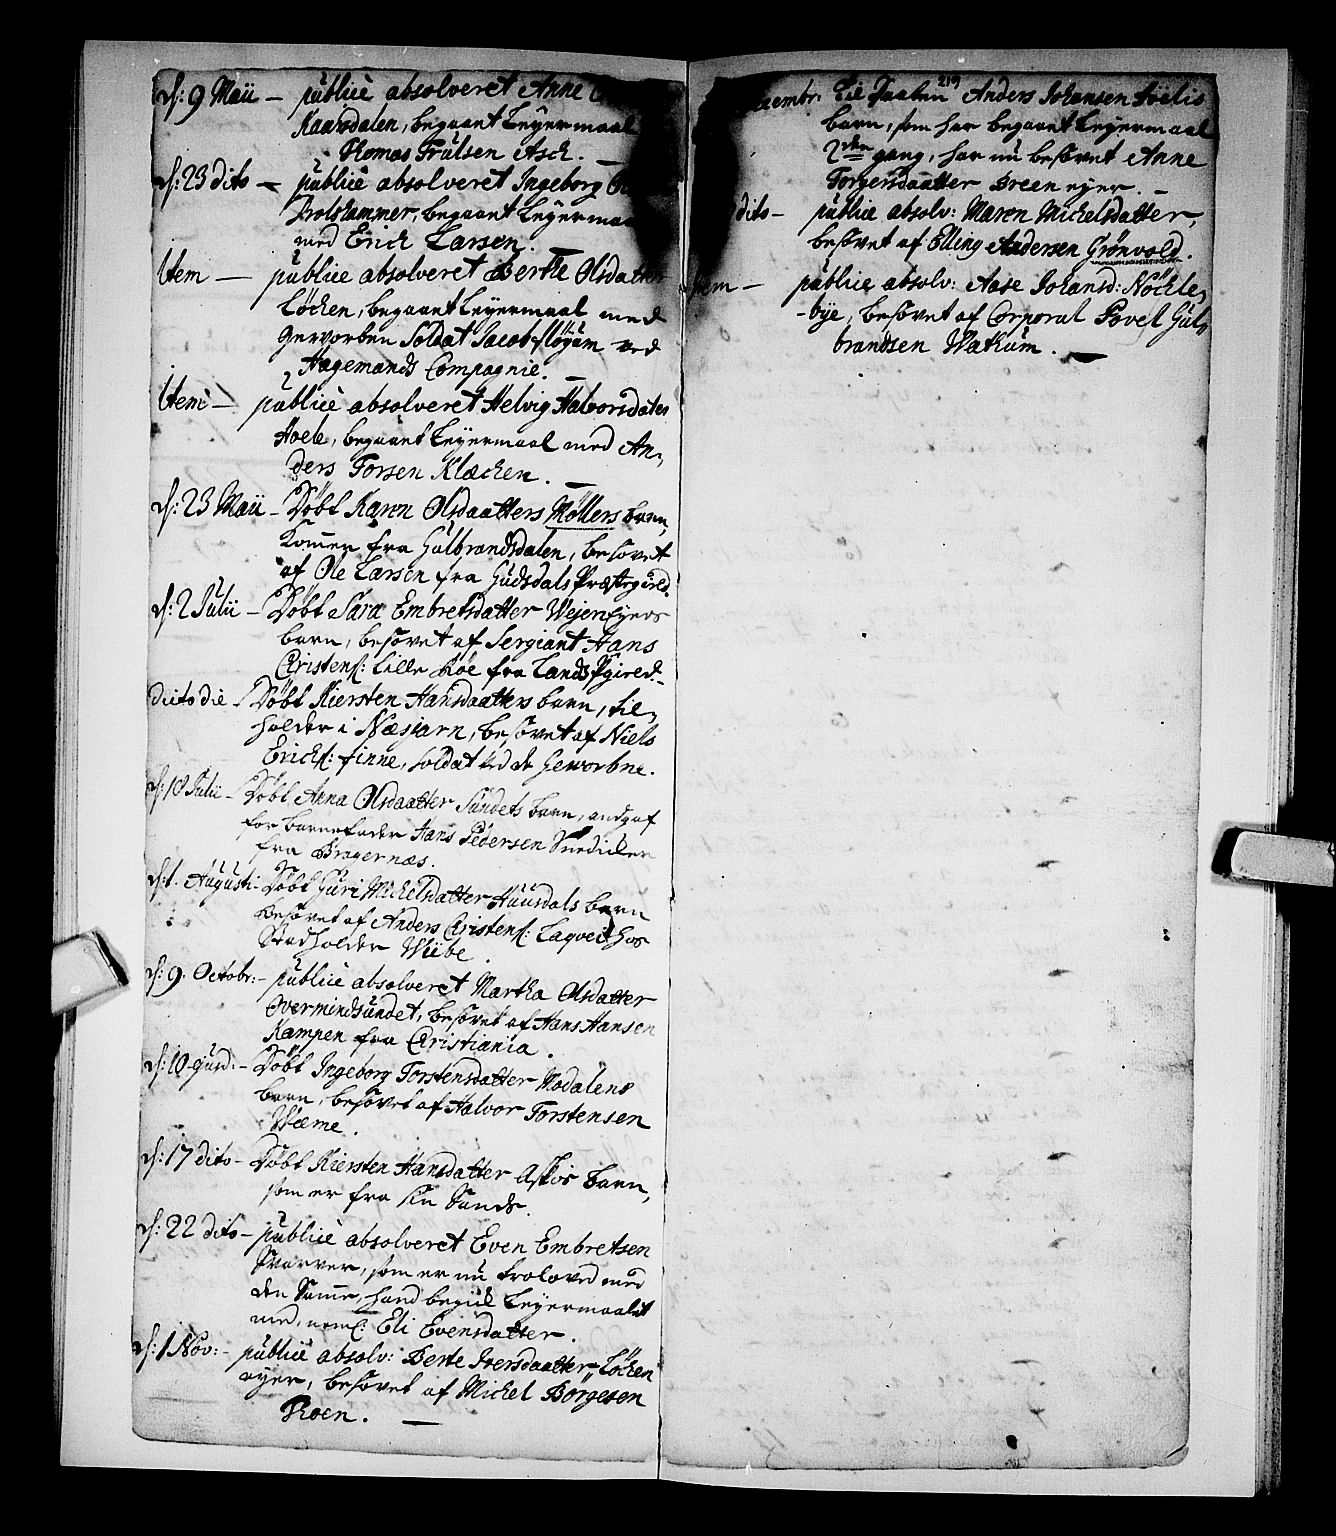 d: 9 Maii — publicè absolveret Anne
Kaarsdalen, begaaet Leyermaal
Thomas Trulsen Asch. —
d: 23 dito — publicè absolveret Ingeborg
Trolshammer, begaaet Leyermaa
med Erich Larsen. —
Item — publicè absolveret Berthe Olsdatter
Løchen, begaaet Leyermaal med
Gevorben Soldat Jacob Fløyum ved
Hagemands Compagnie. —
Item — publicè absolveret Helvig Halvorsdater
Hoele, begaaet Leyermaal med An-
ders Torsen Klæchen. —
d: 23 Maii — Døbt Karen Olsdaatters Møllers barn,
Kommen fra Gulbrandsdalen, besovet
af Ole Larsen fra Gudsdals Præstegield.
d: 2 Julii — Døbt Sara Embretsdatter Wejen Eyers
barn, besovet af Sergiant Hans
Christens: Lille Røe fra Lands Pgield.
dito die — Døbt Kiersten Hansdaatters barn, til-
holder i Næsjarn, besovet af Niels
Erichs: Finne, soldat ved de Geworbne.
d: 18 Julii — Døbt Anna Olsdaatter Sundets barn, andgaf
for barnefader Hans Pedersen Snedicker
fra Bragernæs.
d: 1. Augusti — Døbt Guri Michelsdatter Huusdals barn
besovet af Anders Christens: Laqvei hos
Stadholder Wibe.
d: 9. Octobr: — publicè absolveret Martha Olsdatter
Overmindsundet, besovet af Hans Hansen
Kampen fra Christiania.
d: 10 ejusd: — Døbt Ingeborg Torstensdatter Modalens
barn, besovet af Halvor Torstensen
Wæme.
d: 17 dito — Døbt Kiersten Hansdatter Askös barn,
som er fra sin Bunde.
d: 22 dito — publicè absolveret Even Embretsen
Svarver, som er nu troloved med
den Samme, hand begick Leyermaalet
med, neml: Eli Evensdatter.
d: 1 Nov: — publicè absolv: Berte Iversdaatter Løchen
eyer, besovet af Michel Borgesen
Thoen. —
219
embr: til Daaben Anders Johansen Söelis
barn, som har begaaet Leyermaal
2den gang, har nu besovet Anne
Torgersdaatter Breen eyer. —
dito — publicè absolv: Maren Michelsdatter,
besovet af Elling Andersen Grönvold.
Item — publicè absolv: Aase Johansd: Nöchle-
-bye, besovet af Corporal Povel Gul-
brandsen Wakum. —